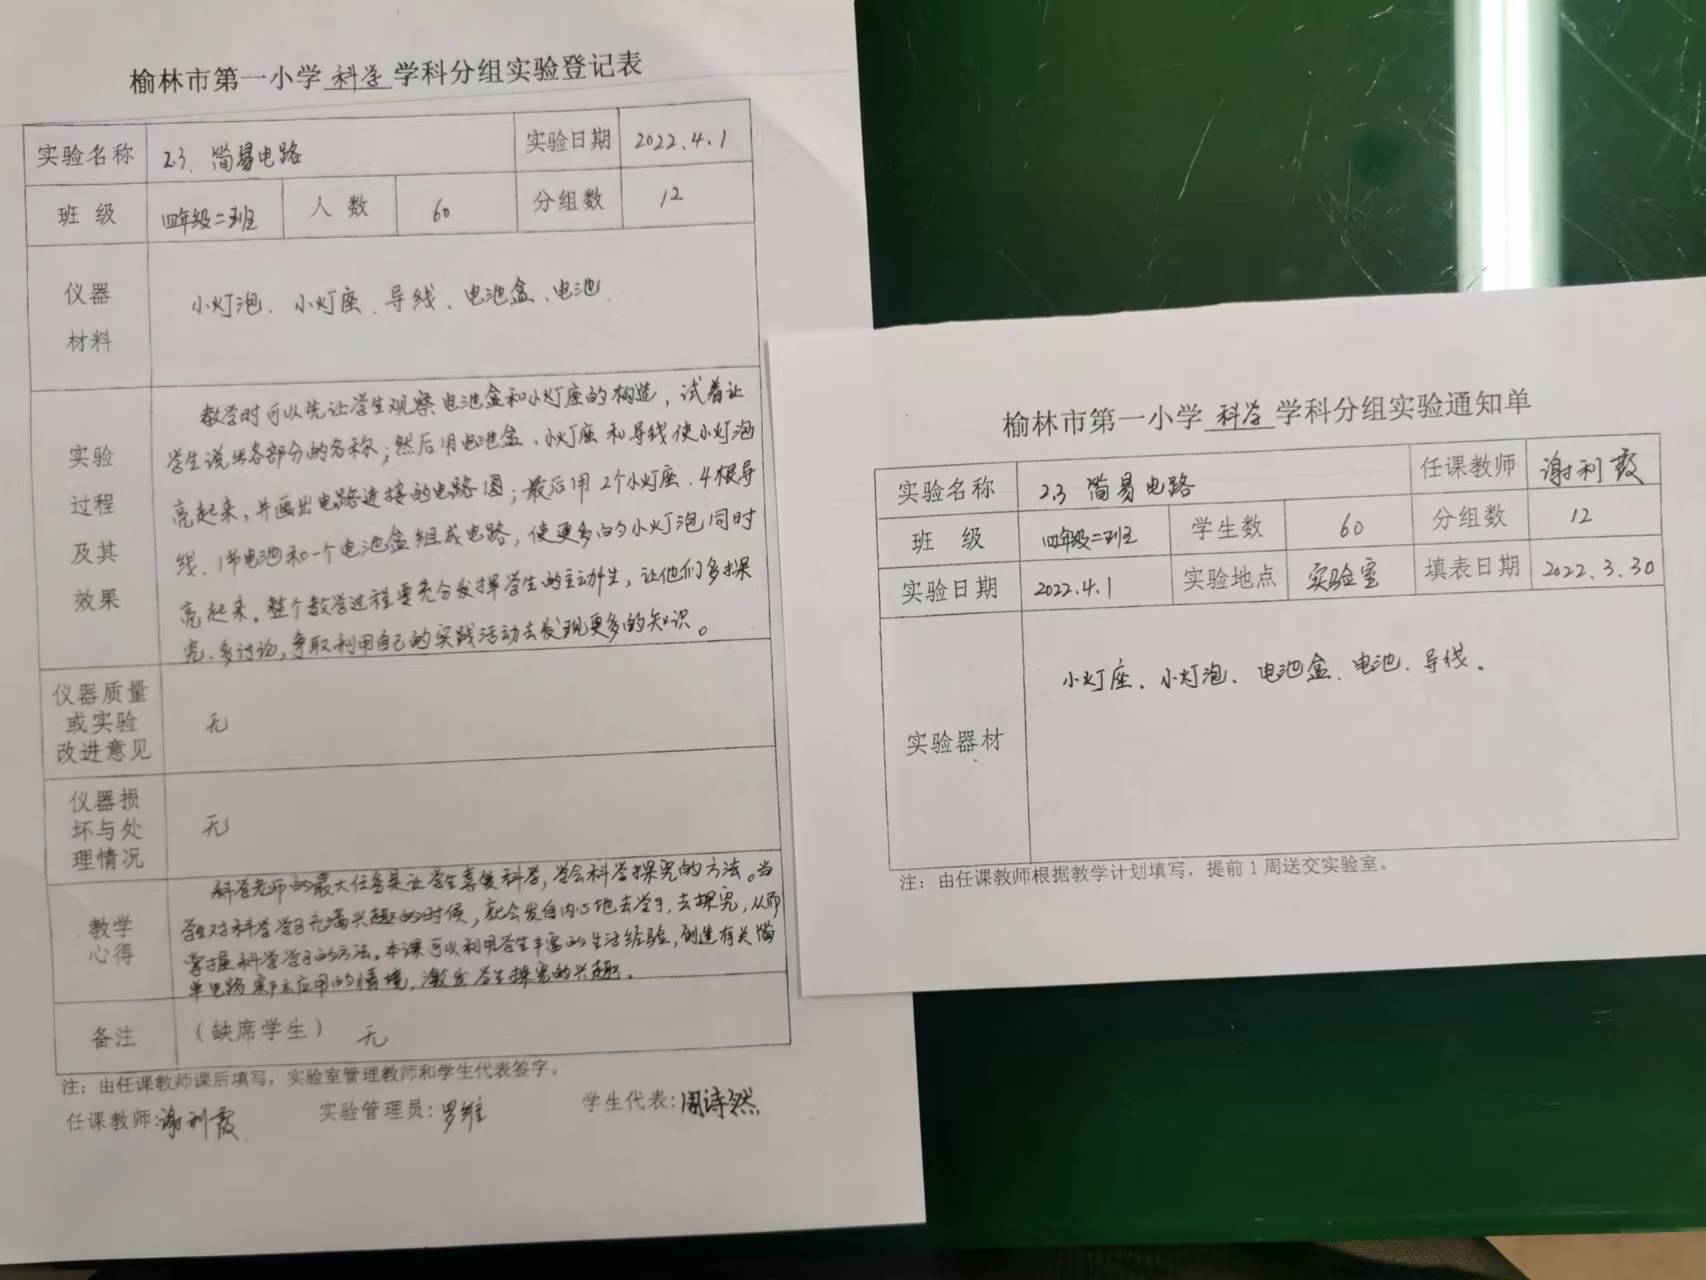 榆林市第一小学 科学 学科分组实验登记表
实验名称 2.3 简易电路 实验日期 2022.4.1
班 级 四年级二班 人 数 60 分组数 12
仪器
材料
小灯泡、小灯座、导线、电池盒、电池
实验
过程
及其
效果
教学时可以先让学生观察电池盒和小灯座的构造，试着让
学生说出各部分的名称；然后用电池盒、小灯座和导线使小灯泡
亮起来，并画出电路连接的电路图；最后用2个小灯座、4根导
线、1节电池和一个电池盒组成电路，使更多的小灯泡同时
亮起来。整个教学过程要充分发挥学生的主动性，让他们多探
究、多讨论，争取利用自己的实践活动去发现更多的知识。
仪器质量
或实验
改进意见
无
仪器损
坏与处
理情况
无
教学
心得
科学老师的最大任务是让学生喜爱科学，学会科学探究的方法。当
学生对科学学习充满兴趣的时候，就会发自内心地去学习，去探究，从而
掌握科学学习的方法。本课可以利用学生丰富的生活经验，创造有关简
单电路实际应用的情境，激发学生探究的兴趣。
备注 （缺席学生） 无
注：由任课教师课后填写，实验室管理教师和学生代表签字。
任课教师：谢利霞 实验管理员：罗维 学生代表：周诗然
榆林市第一小学 科学 学科分组实验通知单
实验名称 2.3 简易电路 任课教师 谢利霞
班 级 四年级二班 学生数 60 分组数 12
实验日期 2022.4.1 实验地点 实验室 填表日期 2022.3.30
实验器材
小灯座、小灯泡、电池盒、电池、导线。
注：由任课教师根据教学计划填写，提前1周送交实验室。